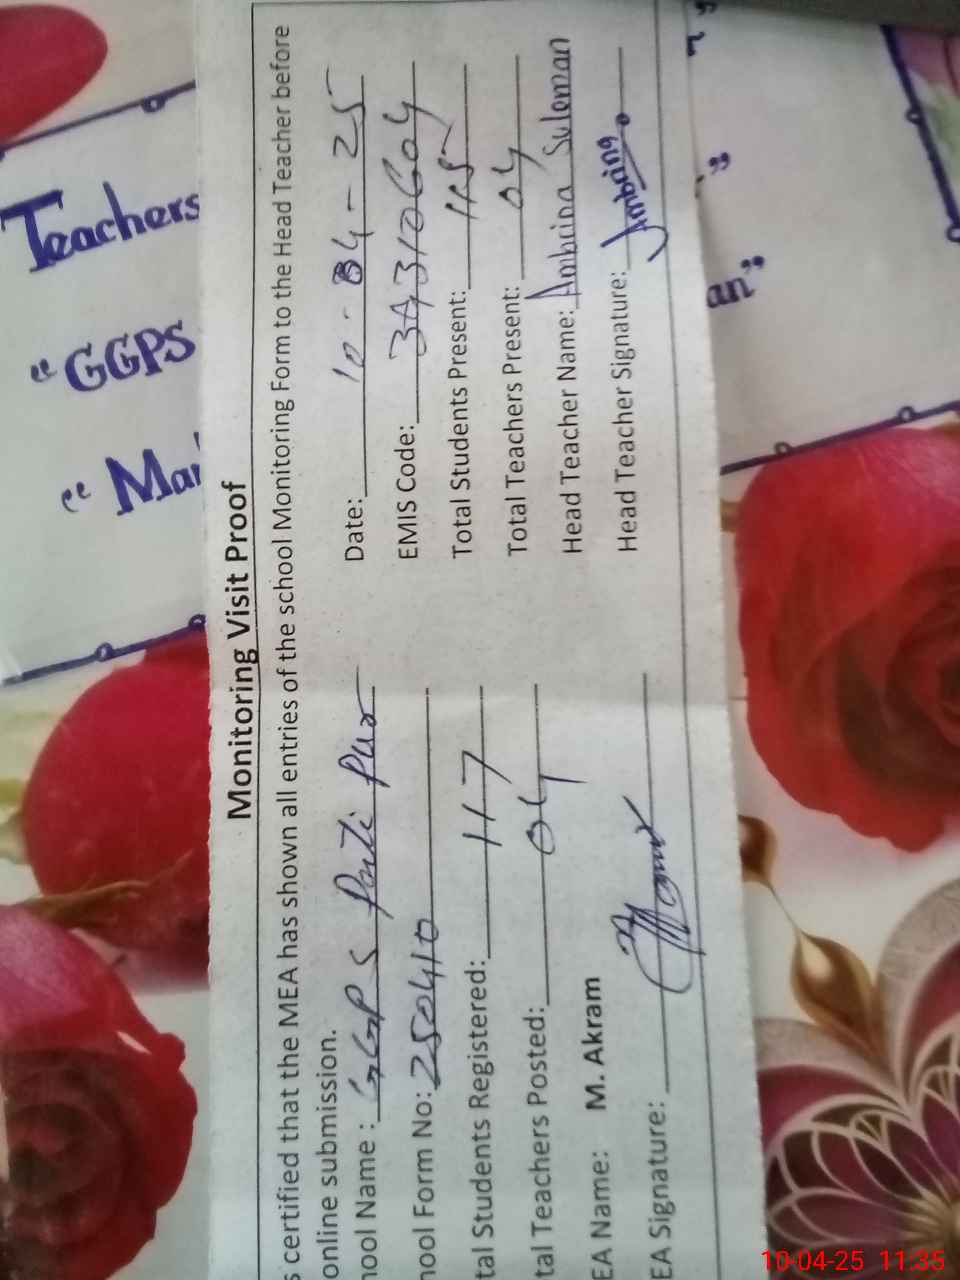 Monitoring Visit Proof
certified that the MEA has shown all entries of the school Monitoring Form to the Head Teacher before
online submission.
hool Name : GGPS
Date: 10-04-25
hool Form No: 250410
EMIS Code:
tal Students Registered: 117
Total Students Present:
tal Teachers Posted: 04
Total Teachers Present: 04
EA Name: M. Akram
Head Teacher Name: Ambrina Suleman
EA Signature:
Head Teacher Signature: Ambrina
Teachers
"GGPS
"Mar
an"
10-04-25 11:35